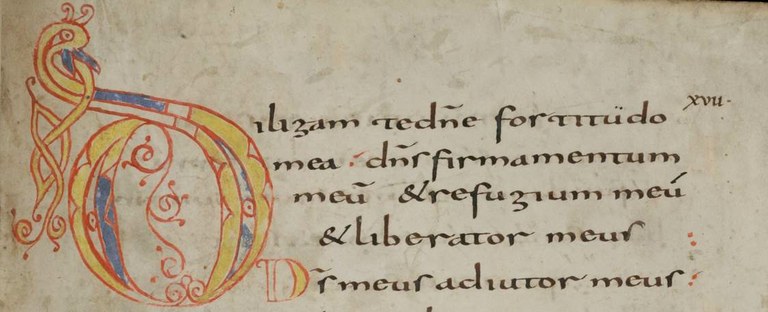 Diligam te dn̄e fortitudo xvii·
mea: dn̄s firmamentum
meū & refugium meū
& liberator meus
Ds̄ meus adiutor meus: